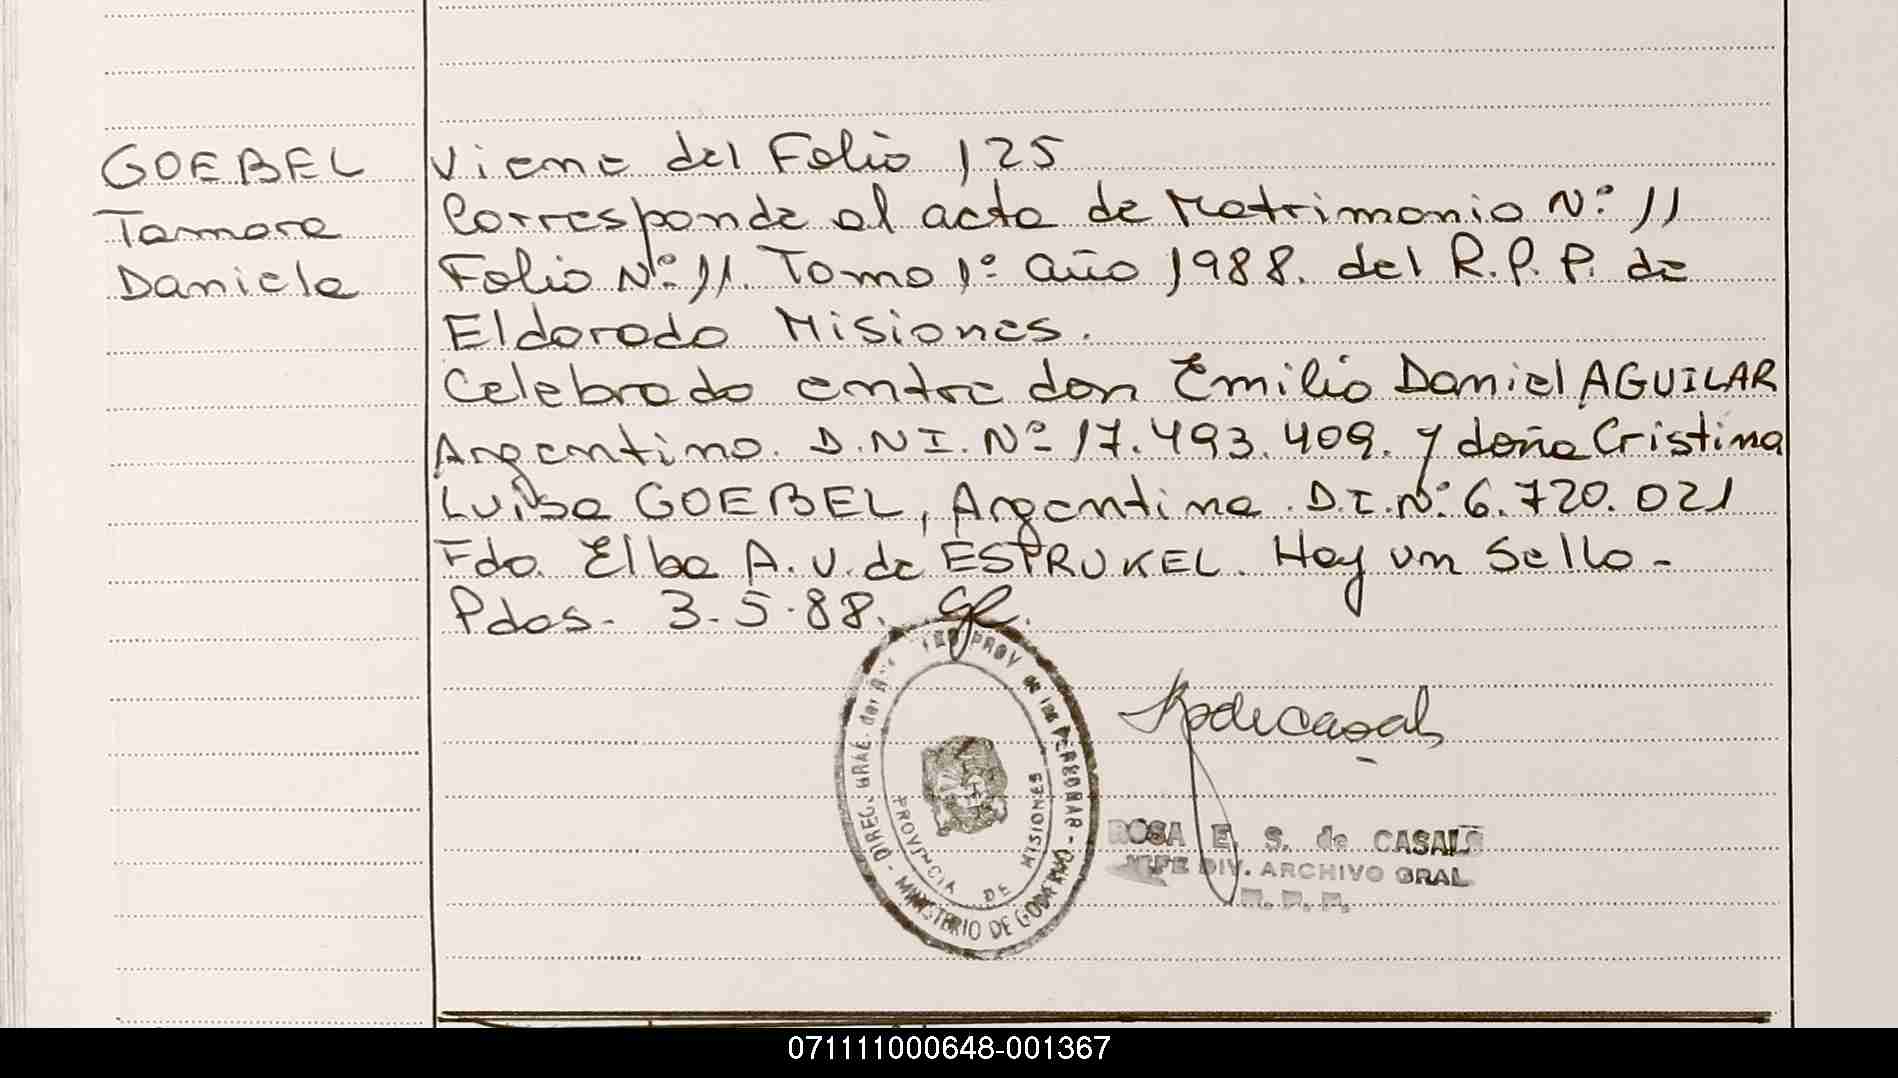 GOEBEL
Tamara
Daniela
Viene del Folio 125
Corresponde al acta de Matrimonio Nº 11
Folio Nº 11. Tomo 1º año 1988. del R.P.P. de
Eldorado Misiones.
Celebrado entre don Emilio Daniel AGUILAR
Argentino. D.N.I. Nº 17.493.409. y doña Cristina
Luisa GOEBEL, Argentina. D.I. Nº 6.720.021
Fdo. Elba A. V. de ESPRUKEL. Hay un Sello -
Pdas. 3.5.88.
DIREC. GRAL. del PROV de las PERSONAS - MINISTERIO DE GOBIERNO
PROVINCIA DE MISIONES
ROSA E. S. de CASALS
JEFE DIV. ARCHIVO GRAL
R. P. P.
071111000648-001367